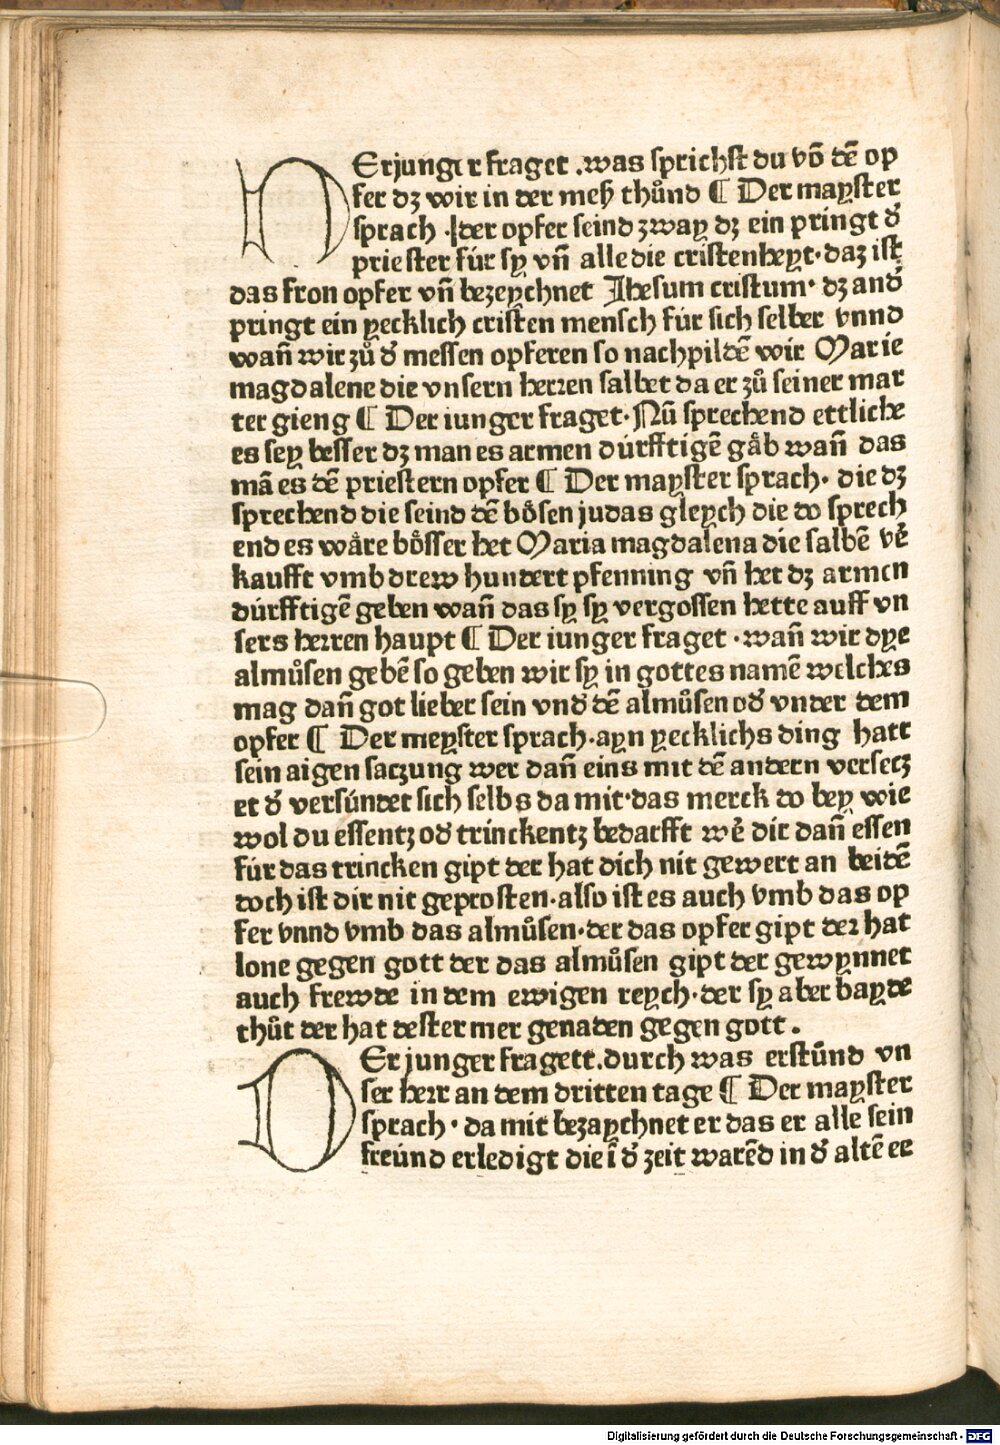 DErjunger fraget .was sprichst du vō dē op
fer dz wir in der meß thůnd ¶ Der mayster
sprach .der opfer seind zway dz ein pringt d᷑
priester für sy vn̄ alle die cristenheyt·daz ist
das fron opfer vn̄ bezeychnet Jhesum cristum· dz and᷑
pringt ein yecklich cristen mensch für sich selber vnnd
wan̄ wir zů d᷑ messen opferen so nachpildē wir Marie
magdalene die vnsern herren salbet da er zů seiner mar
ter gieng ¶ Der iunger fraget·Nū sprechend ettliche
es sey besser dz man es armen dürfftigē gäb wan̄ das
mā es dē priestern opfer ¶ Der mayster sprach· die dz
sprechend die seind dē bösen judas gleych die do sprech
end es wäre bösser het Maria magdalena die salbē v᷑e
kaufft vmb drew hundert pfenning vn̄ het dz armen
dürfftigē geben wan̄ das sy sy vergossen hette auff vn
sers herren haupt ¶ Der iunger fraget ·wan̄ wir dye
almůsen gebē so geben wir sy in gottes namē welches
mag dan̄ got lieber sein vnd᷑ dē almůsen od᷑ vnder dem
opfer ¶ Der meyster sprach·ayn yecklichs ding hatt
sein aigen saczung wer dan̄ eins mit dē andern versecz
et d᷑ versündet sich selbs da mit·das merck do bey wie
wol du essentz od᷑ trinckentz bedarfft we᷑ dir dan̄ essen
für das trincken gipt der hat dich nit gewert an beidē
doch ist dir nit geprosten·also ist es auch vmb das op
fer vnnd vmb das almůsen·der das opfer gipt der hat
lone gegen gott der das almůsen gipt der gewynnet
auch frewde in dem ewigen reych·der sy aber bayde
thůt der hat dester mer genaden gegen gott .
DEr junger fragett.durch was erstūnd vn
ser herr an dem dritten tage ¶ Der mayster
sprach · da mit bezaychnet er das er alle sein
freünd erledigt die ī d᷑ zeit warēd in d᷑ altē ee
Digitalisierung gefördert durch die Deutsche Forschungsgemeinschaft - DFG